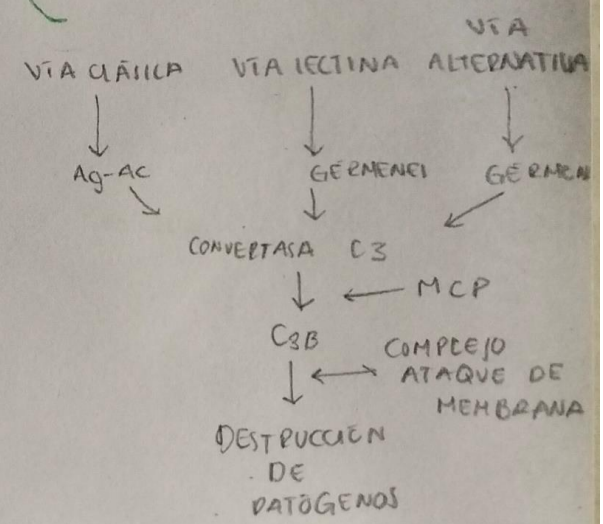 VÍA CLÁSICA
VÍA LECTINA
VÍA
ALTERNATIVA
Ag-Ac
GÉRMENES
GÉRMEN
CONVERTASA C3
MCP
C3B
COMPLEJO
ATAQUE DE
MEMBRANA
DESTRUCCIÉN
DE
PATÓGENOS